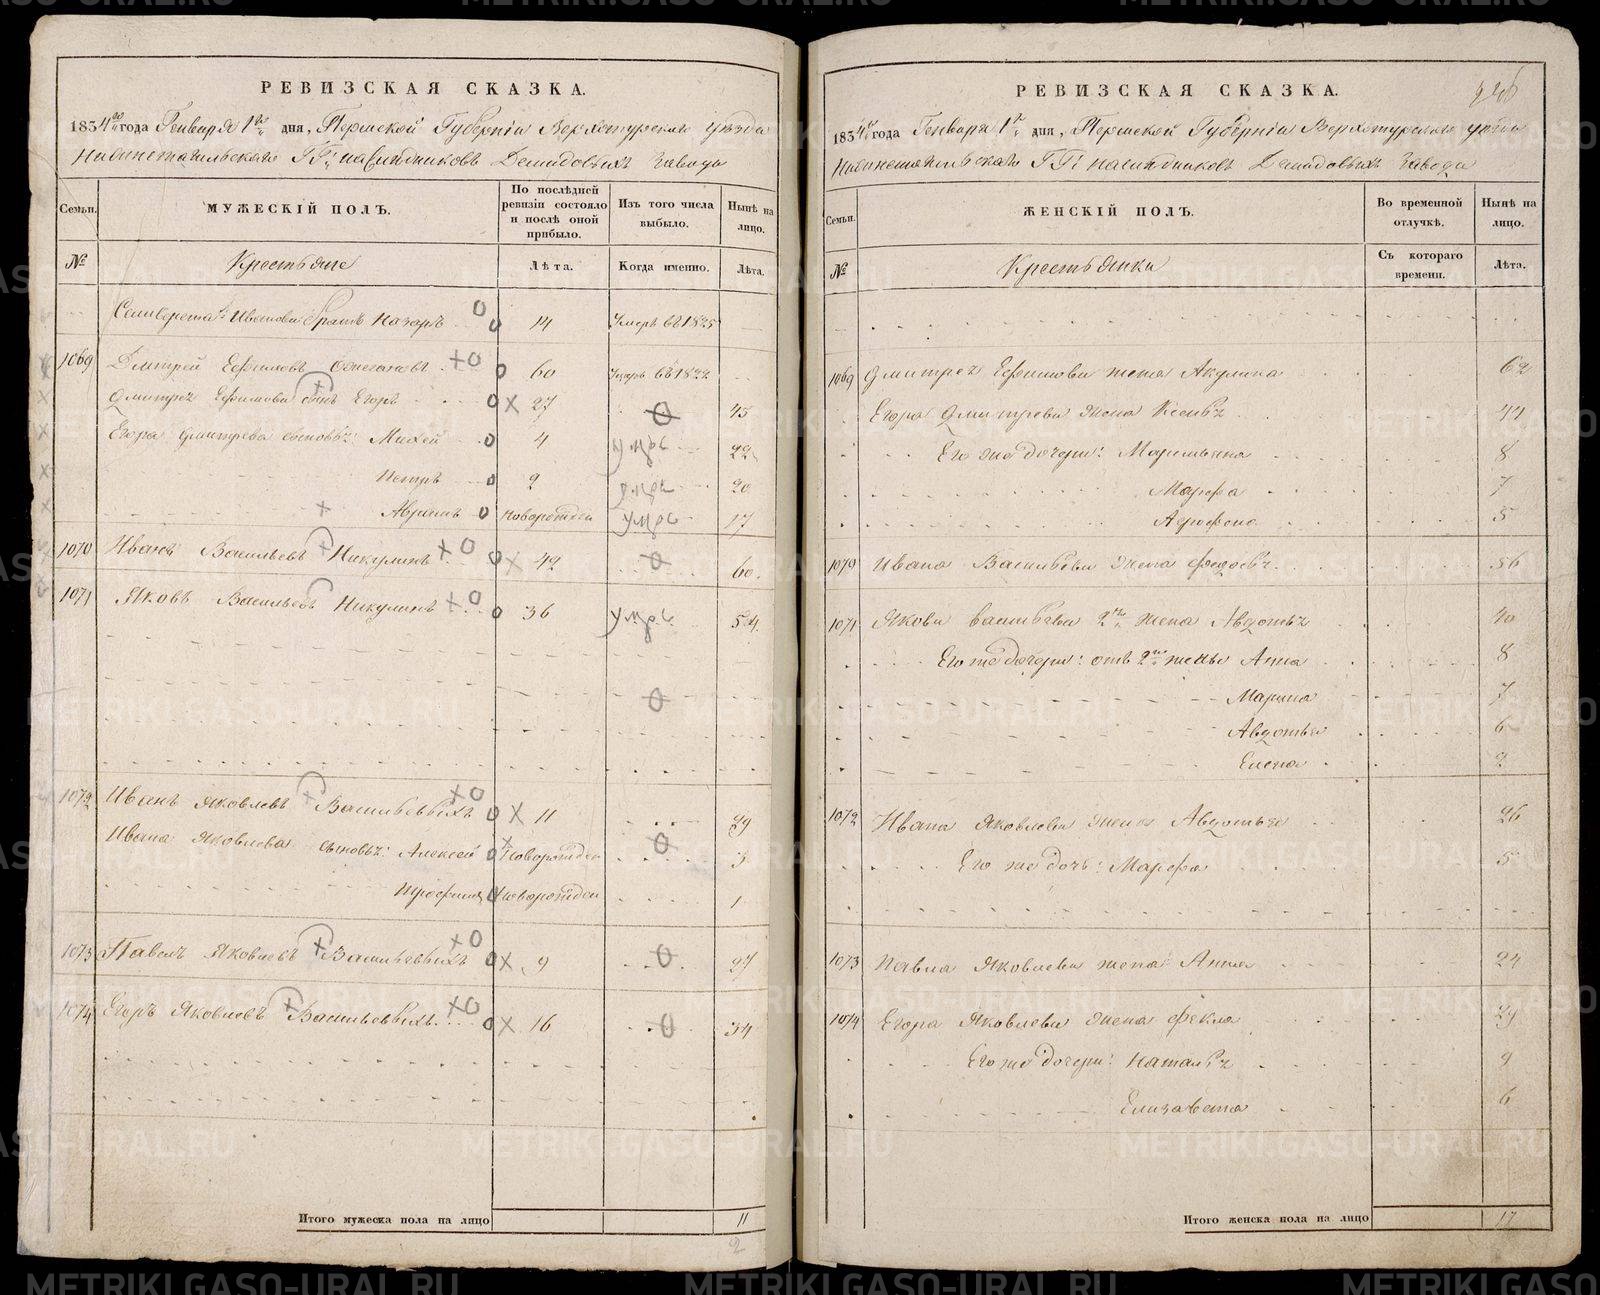 РЕВИЗСКАЯ СКАЗКА.
1834го года Генваря 1го дня, Пермской Губернiи Верхотурскаго уѣзда
Нижнетагильскаго ГГ: наслѣдниковъ Демидовыхъ завода
Семьи.
МУЖЕСКIЙ ПОЛЪ.
По послѣдней ревизiи состояло и послѣ оной прибыло.
Изъ того числа выбыло.
Нынѣ на лицо.
№
Крестьяне
Лѣта.
Когда именно.
Лѣта.
Ивановы братъ Назаръ 14 Умеръ въ 1825
1069 Дмитрей Ефимовъ 60 Умеръ въ 1822
Дмитрея Ефимова сынъ Егоръ 27 45
Егора Дмитрева сыновья: Михей 4 умръ 22
Петръ 2 умръ 20
Абрамъ новорожден умръ 17
1070 Иванъ Васильевъ Никулинъ 42 60.
1071 Яковъ Васильевъ Никулинъ 36 умръ 54.
1072 Иванъ Яковлевъ Васильевыхъ 11 29
Ивана Яковлева сыновья: Алексей новорожден 3
Трофимъ новорожден 1
1073 Павелъ Яковлевъ Васильевыхъ 9 27
1074 Егоръ Яковлевъ Васильевыхъ 16 34
Итого мужеска пола на лицо 11
2
226
РЕВИЗСКАЯ СКАЗКА.
1834го года Генваря 1го дня, Пермской Губернiи Верхотурскаго уѣзда
Нижнетагильскаго ГГ: наслѣдниковъ Демидовыхъ завода
Семьи.
ЖЕНСКIЙ ПОЛЪ.
Во временной отлучкѣ.
Нынѣ на лицо.
№
Крестьянки
Съ котораго времени.
Лѣта.
1069 Дмитрея Ефимова жена Акулина 62
Егора Дмитрева жена Ксенья 44
Его же дочери: Маремьяна 8
Марфа 7
Агрофена 5
1070 Ивана Васильева жена Федосья 56
1071 Якова Васильева 2я жена Авдотья 40
Его же дочери: отъ 2й жены Анна 8
Марина 7
Авдотья 6
Елена 2
1072 Ивана Яковлева жена Авдотья 26
Его же дочь: Марфа 5
1073 Павла Яковлева жена Анна 24
1074 Егора Яковлева жена Фекла 29
Его же дочери: Наталья 9
Елизавета 6
Итого женска пола на лицо 17
METRIKI.GASO-URAL.RU